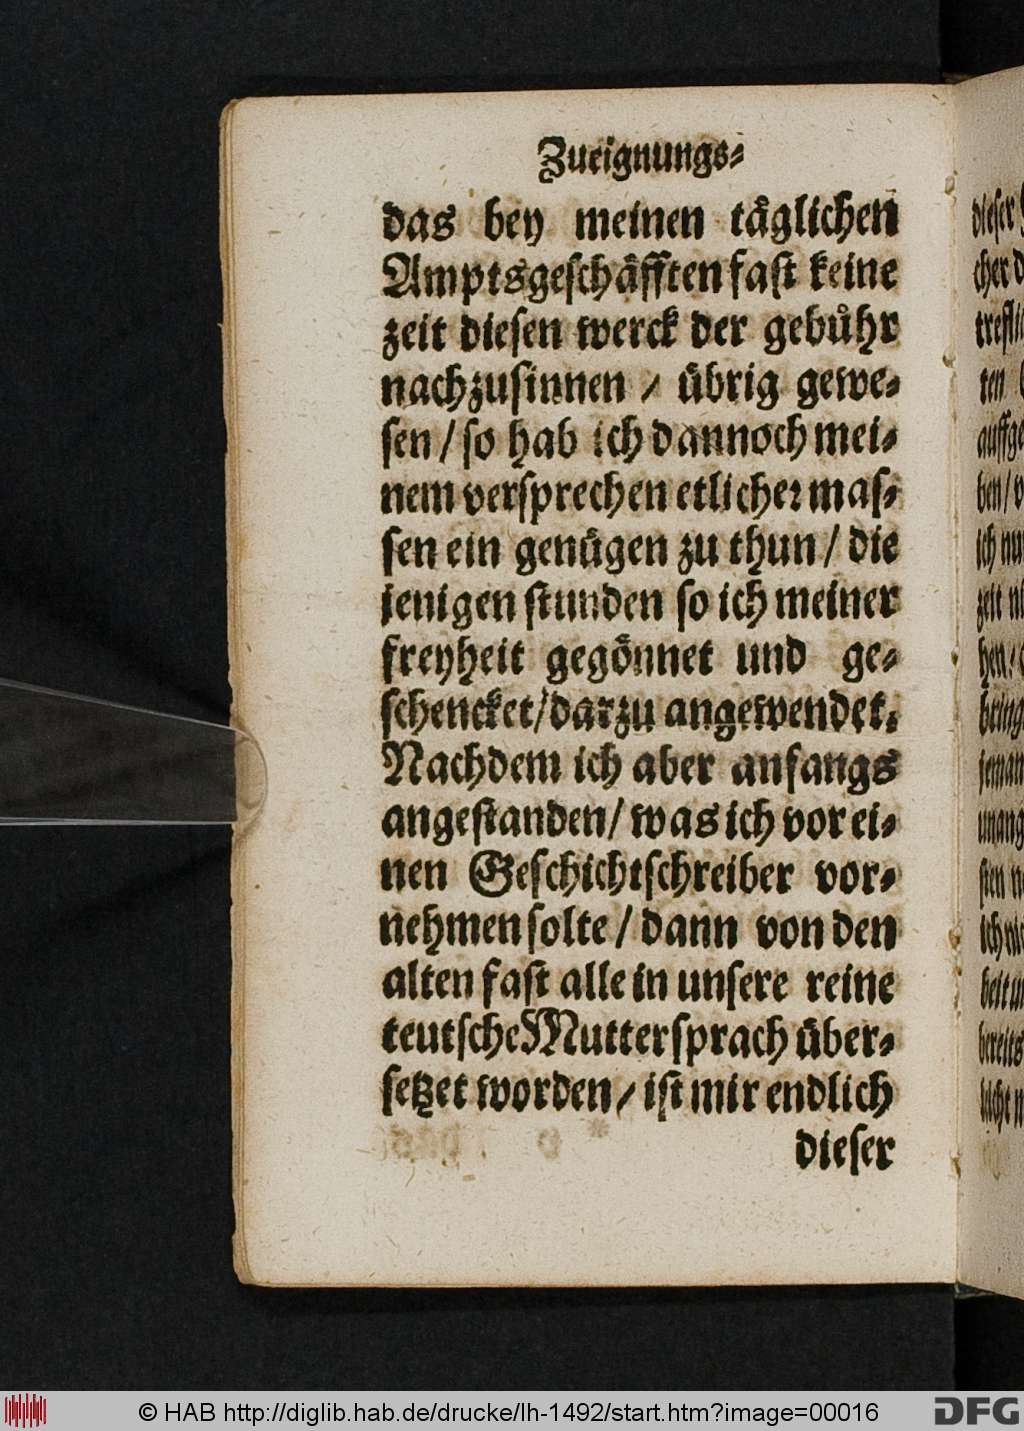 Zueignungs⸗
das bey meinen täglichen
Amptsgeschäfften fast keine
zeit diesen werck der gebühr
nachzusinnen / übrig gewe⸗
sen / so hab ich dannoch mei⸗
nem versprechen etlicher mas⸗
sen ein genügen zu thun / die
jenigen stunden so ich meiner
freyheit gegönnet und ge⸗
schencket / darzu angewendet.
Nachdem ich aber anfangs
angestanden / was ich vor ei⸗
nen Geschichtschreiber vor⸗
nehmen solte / dann von den
alten fast alle in unsere reine
teutsche Muttersprach über⸗
setzet worden / ist mir endlich
dieser
dieser
cher
ten
ben /
ich
zeit
hen /
© HAB http://diglib.hab.de/drucke/lh-1492/start.htm?image=00016
DFG